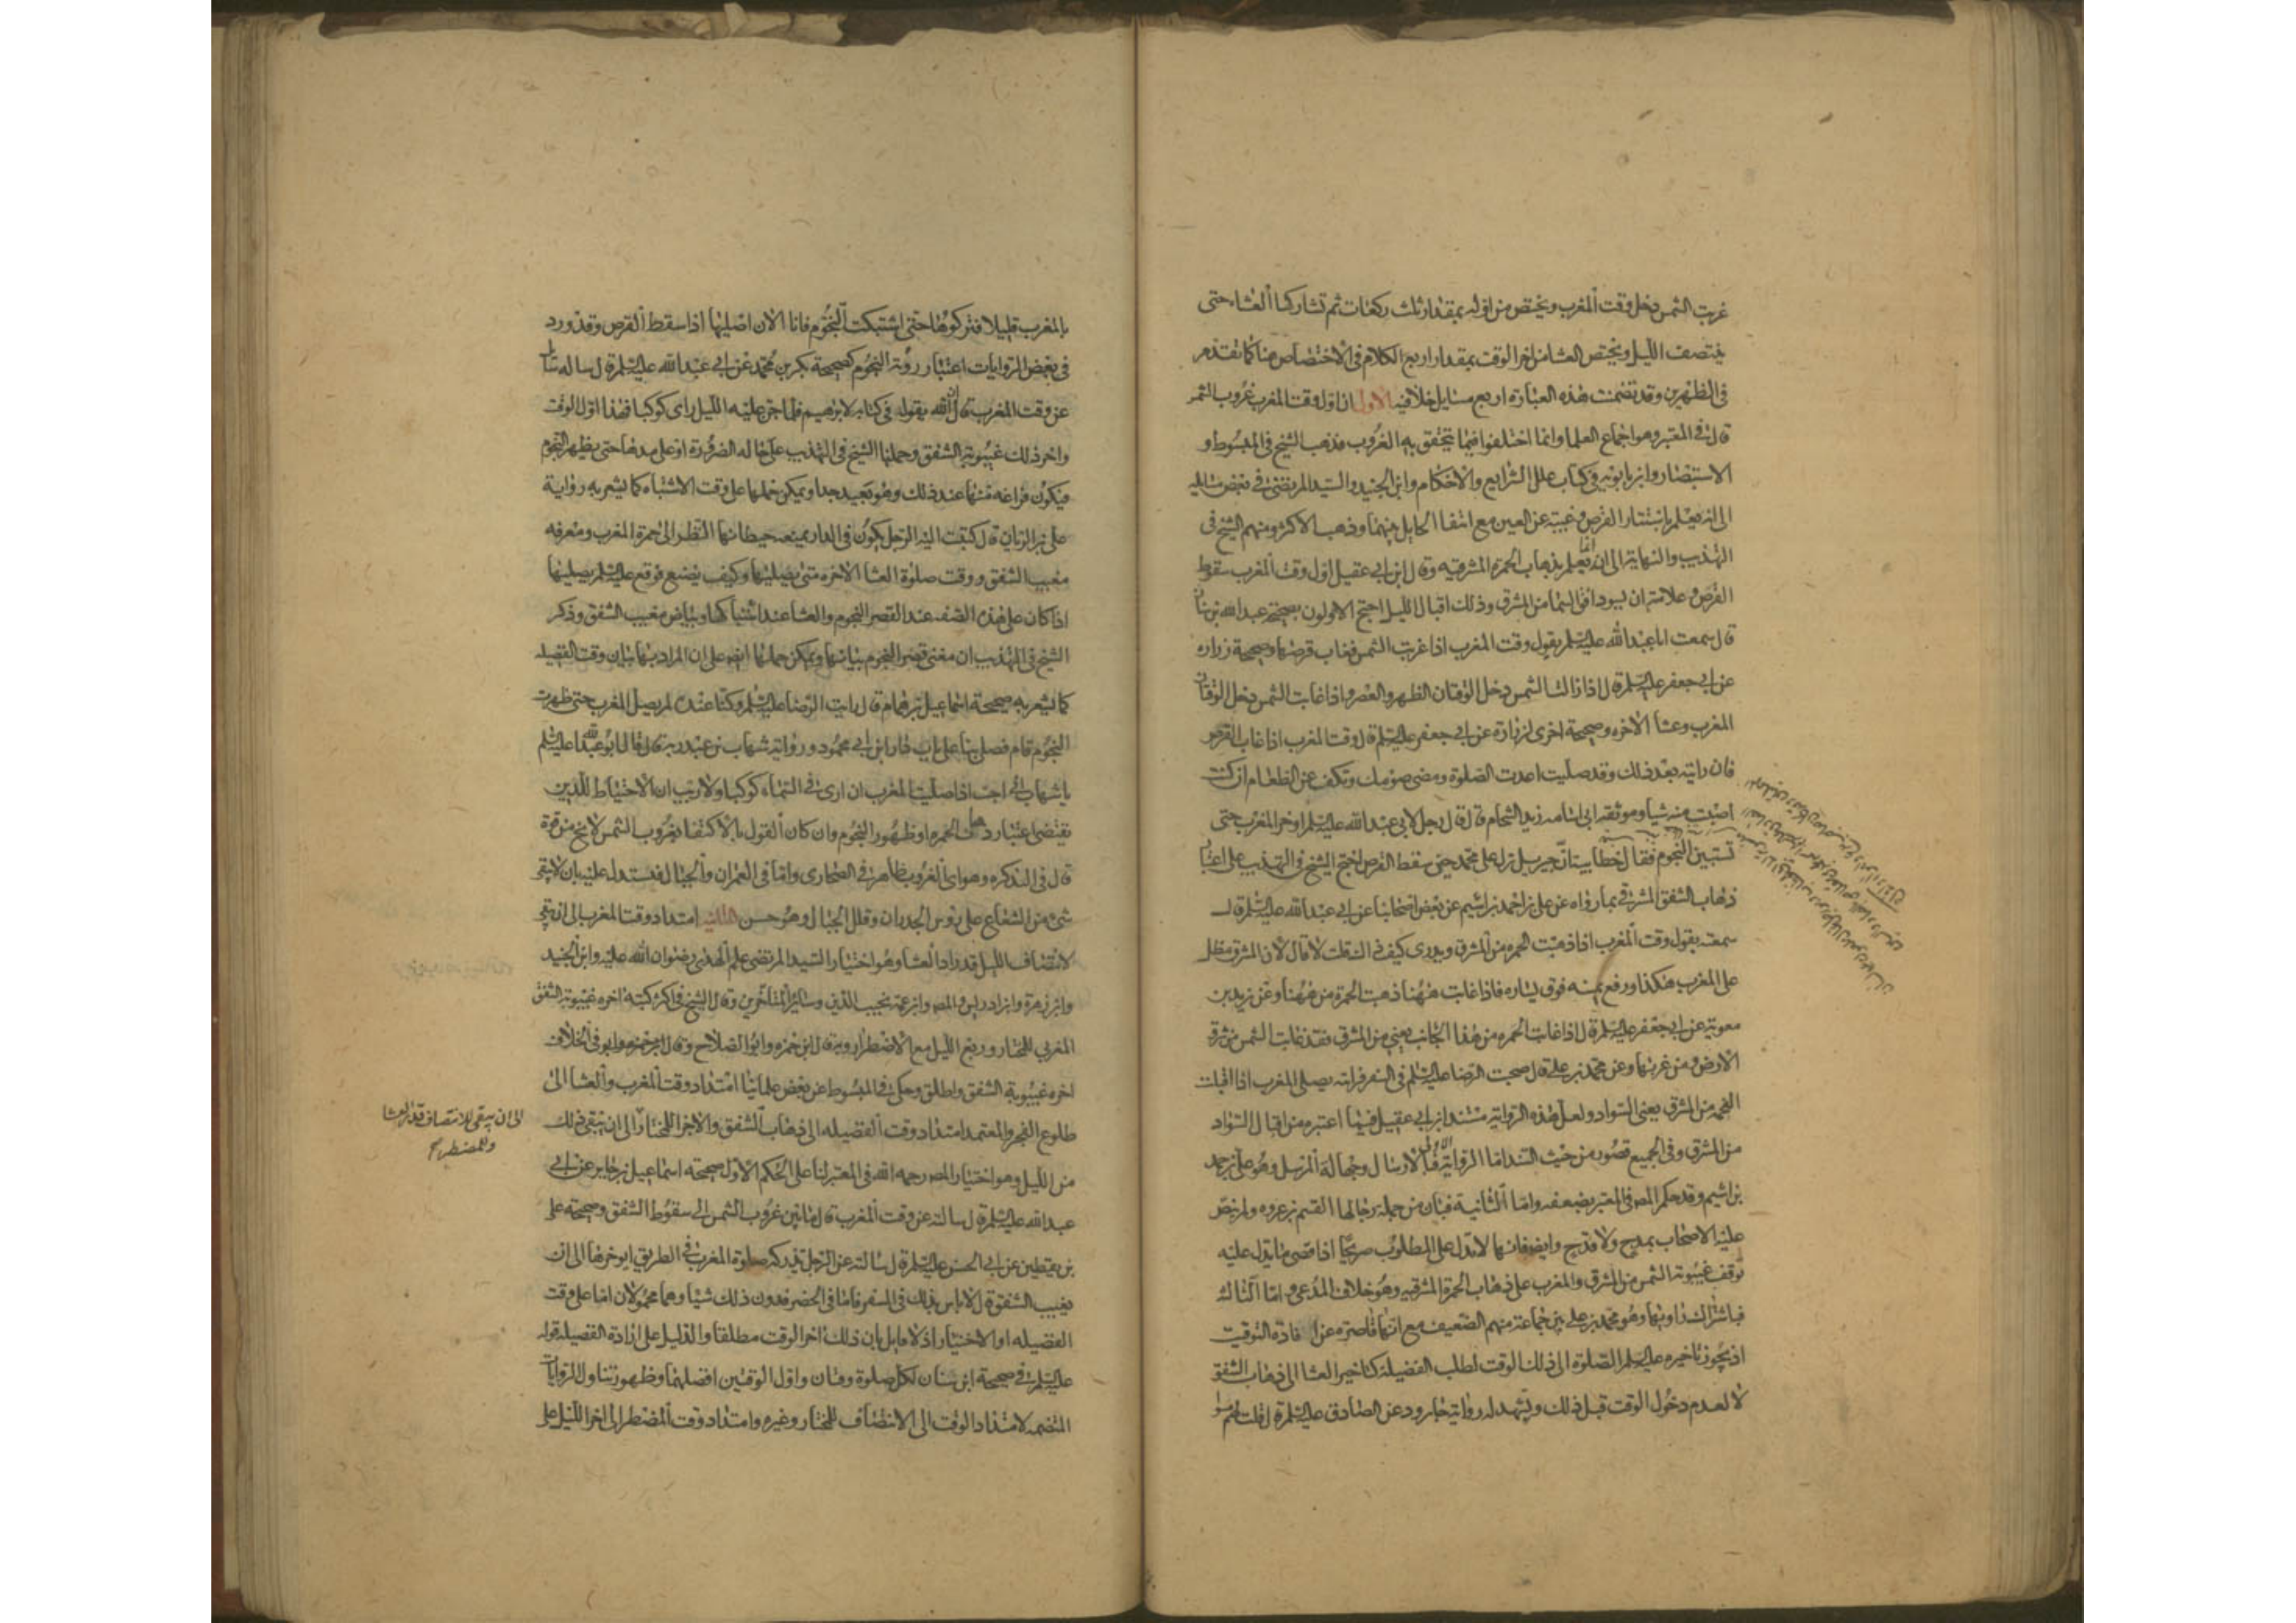 غربت الشمس دخل وقت المغرب ويختص من اوله بمقدار ثلث ركعات ثم تشاركها العشاء حتى
ينتصف الليل ويختص العشا من اخر الوقت بمقدار اربع الكلام فى الاختصاص هنا كما تقدم
فى الظهرين وقد تضمنت هذه العبارة اربع مسايل خلافيه الاولى ان اول وقت المغرب غروب الشمس
قال فى المعتبر وهو اجماع العلما وانما اختلفوا فيما يتحقق به الغروب فذهب الشيخ فى المبسوط و
الاستبصار وابن بابويه فى كتاب علل الشرايع والاحكام وابن الجنيد والسيد المرتضى فى بعض مسايله
الى انه يعلم باستتار القرص وغيبته عن العين مع انتفا الحايل بينهما وذهب الاكثر ومنهم الشيخ فى
التهذيب والنهاية الى انه انما يعلم بذهاب الحمرة المشرقيه وقال ابن ابى عقيل اول وقت المغرب سقوط
القرص وعلامته ان يسود افق السما من المشرق وذلك اقبال الليل احتج الاولون بصحيحة عبد الله بن سنان
قال سمعت ابا عبد الله عليه السلم يقول وقت المغرب اذا غربت الشمس فغاب قرصها وصحيحة زراره
عن ابى جعفر عليه السلم قال اذا زالت الشمس دخل الوقتان الظهر والعصر واذا غابت الشمس دخل الوقتان
المغرب وعشا الاخره وصحيحة اخرى لزرارة عن ابى جعفر عليه السلم قال وقت المغرب اذا غاب القرص
فان رايته بعد ذلك وقد صليت اعدت الصلوة ومضى صومك وتكف عن الطعام ان كنت
اصبت منه شيا وموثقه ابى اسامه زيد الشحام قال قال رجل لابى عبد الله عليه السلم اوخر المغرب حتى
تستبين النجوم فقال خطابية ان جبريل نزل على محمد حين سقط القرص احتج الشيخ فى التهذيب على اعتبار
ذهاب الشفق المشرقى بما رواه عن على بن احمد بن اشيم عن بعض اصحابنا عن ابى عبد الله عليه السلم قال
سمعته يقول وقت المغرب اذا ذهبت الحمره من المشرق وتدرى كيف ذلك قلت لا قال لان المشرق مطل
على المغرب هكذا ورفع يمينه فوق يساره فاذا غابت ههنا ذهبت الحمرة من ههنا وعن بريد بن
معوية عن ابى جعفر عليه السلم قال اذا غابت الحمره من هذا الجانب يعنى من المشرق فقد غابت الشمس من شرق
الارض ومن غربها وعن محمد بن على قال صحبت الرضا عليه السلم فى السفر فرايته يصلى المغرب اذا اقبلت
الفحمه من المشرق يعنى السواد ولعل هذه الرواية مستند ابن ابى عقيل فيما اعتبره من اقبال السواد
من المشرق وفى الجميع قصور من حيث السند اما الرواية الاولى فبالارسال وجهالة المرسل وهو على بن احمد
بن اشيم وقد حكم المص فى المعتبر بضعفه واما الثانية فبان من جملة رجالها القسم بن عروه ولم ينص
عليه الاصحاب بمدح ولا قدح وايضا فانها لا تدل على المطلوب صريحا اذ اقصى ما تدل عليه
توقف غيبوبة الشمس من المشرق والمغرب على ذهاب الحمرة المشرقيه وهو خلاف المدعى واما الثالثه
فباشتراك راويها وهو محمد بن على بين جماعة منهم الضعيف مع انها قاصره عن افادة التوقيت
اذ يجوز تاخيره عليه السلم الصلوة الى ذلك الوقت لطلب الفضيلة كتاخير العشا الى ذهاب الشفق
لا لعدم دخول الوقت قبل ذلك ويشهد له رواية جارود عن الصادق عليه السلم قال قلت لهم مسوا
بالمغرب قليلا فتركوها حتى اشتبكت النجوم فانا الان اصليها اذا سقط القرص وقد ورد
فى بعض الروايات اعتبار رؤية النجوم كصحيحة بكر بن محمد عن ابى عبد الله عليه السلم قال ساله سائل
عن وقت المغرب قال ان الله يقول فى كتابه لابرهيم فلما جن عليه الليل راى كوكبا فهذا اول الوقت
واخر ذلك غيبوبة الشفق وحملها الشيخ فى التهذيب على حالة الضرورة او على مدها حتى يظهر النجوم
فيكون فراغه منها عند ذلك وهو بعيد جدا ويمكن حملها على وقت الاشتباه كما يشعر به رواية
على بن الريان قال كتبت اليه الرجل يكون فى الدار يمنعه حيطانها النظر الى حمرة المغرب ومعرفه
مغيب الشفق ووقت صلوة العشا الاخره متى يصليها وكيف يصنع فوقع عليه السلم يصليها
اذا كان على هذه الصفه عند القصر النجوم والعشا عند اشتباكها وبياض مغيب الشفق وذكر
الشيخ فى التهذيب ان معنى قصر النجوم بيانها ويمكن حملها ايضا على ان المراد بها بيان وقت الفضيله
كما يشعر به صحيحة اسماعيل بن همام قال رايت الرضا عليه السلم وكنا عنده لم يصل المغرب حتى ظهرت
النجوم قام فصلى بنا على باب دار ابن ابى محمود ورواية شهاب بن عبد ربه قال قال ابو عبد الله عليه السلم
يا شهاب انى احب اذا صليت المغرب ان ارى فى السماء كوكبا ولا ريب ان الاحتياط للدين
يقتضى اعتبار ذهاب الحمره او ظهور النجوم وان كان القول بالاكتفا بغروب الشمس لا يخ من قوة
قال فى التذكره وهو اى الغروب ظاهر فى الصحارى واما فى العمران والجبال فيستدل عليه بان لا يبقى
شئ من الشعاع على رؤس الجدران وقلل الجبال وهو حسن الثانيه امتداد وقت المغرب الى ان يبقى
لانتصاف الليل قدر اداء العشا وهو اختيار السيد المرتضى علم الهدى رضوان الله عليه وابن الجنيد
وابن زهرة وابن ادريس والمص وابن عمه نجيب الدين وسائر المتاخرين وقال الشيخ فى اكثر كتبه اخره غيبوبة الشفق
المغربى للمختار وربع الليل مع الاضطرار وبه قال ابن حمزه وابو الصلاح وقال فى الخلاف
اخره غيبوبة الشفق واطلق وحكى فى المبسوط عن بعض علمائنا امتداد وقت المغرب والعشا الى
طلوع الفجر والمعتمد امتداد وقت الفضيله الى ذهاب الشفق والاجزا للمختار الى ان يبقى ذلك
الى ان يبقى للانتصاف قدر العشا
وللمضطر صح
من الليل وهو اختيار المص رحمه الله فى المعتبر لنا على الحكم الاول صحيحة اسماعيل بن جابر عن ابى
عبد الله عليه السلم قال سالته عن وقت المغرب قال ما بين غروب الشمس الى سقوط الشفق وصحيحة على
بن يقطين عن ابى الحسن عليه السلم قال سالته عن الرجل تدركه صلوة المغرب فى الطريق ايوخرها الى ان
يغيب الشفق قال لا باس بذلك فى السفر فاما فى الحضر فدون ذلك شيئا وهما محمولان اما على وقت
الفضيله او الاختيار اذ لا قايل بان ذلك اخر الوقت مطلقا والدليل على ارادة الفضيلة قوله
عليه السلم فى صحيحة ابن سنان لكل صلوة وقتان واول الوقتين افضلهما وظهور تناول الروايات
المتضمنه لامتداد الوقت الى الانتصاف للمختار وغيره وامتداد وقت المضطر الى اخر الليل على